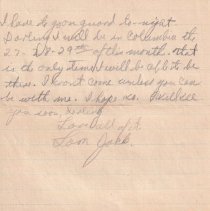 I have to go on guard to-night
Darling I will be in Columbia the
27 - 28 - 29th of this month. that
is the only time I will be able to be
there. I won't come unless you can
be with me. I hope so. Will see
you soon, Darling
Love
Jack